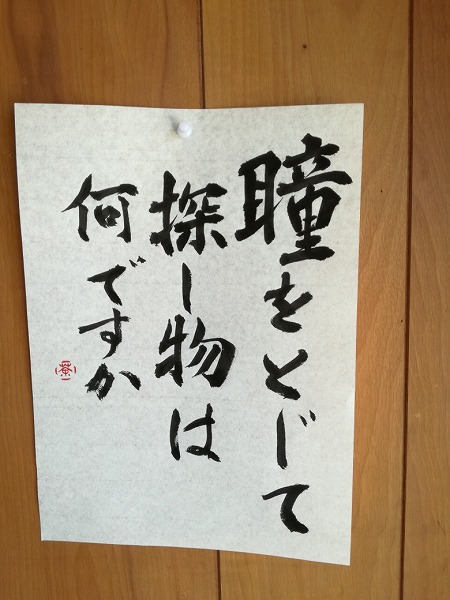 瞳をとじて
探し物は
何ですか